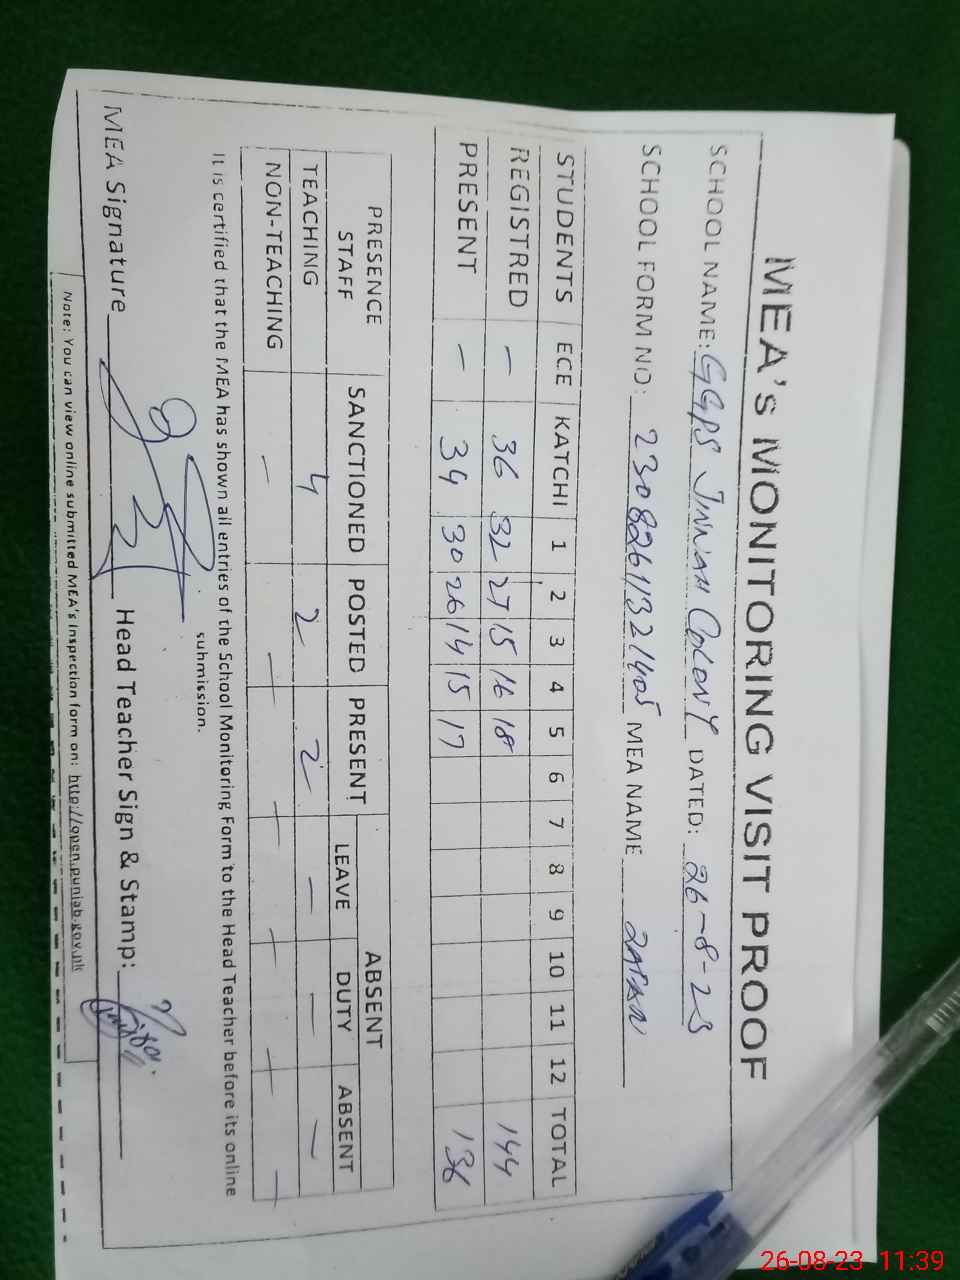 MEA's MONITORING VISIT PROOF
SCHOOL NAME: GGPS JINNAH COLONY DATED: 26-8-23
SCHOOL FORM NO: 23082611321405 MEA NAME
STUDENTS ECE KATCHI 1 2 3 4 5 6 7 8 9 10 11 12 TOTAL
REGISTRED — 36 32 27 15 16 18 144
PRESENT — 34 30 26 14 15 17 136
PRESENCE STAFF SANCTIONED POSTED PRESENT ABSENT
LEAVE DUTY ABSENT
TEACHING 4 2 2 — — —
NON-TEACHING — — — — — —
It is certified that the MEA has shown all entries of the School Monitoring Form to the Head Teacher before its online
submission.
MEA Signature Head Teacher Sign & Stamp:
Note: You can view online submitted MEA's Inspection form on: http://open.punjab.gov.pk
26-08-23 11:39